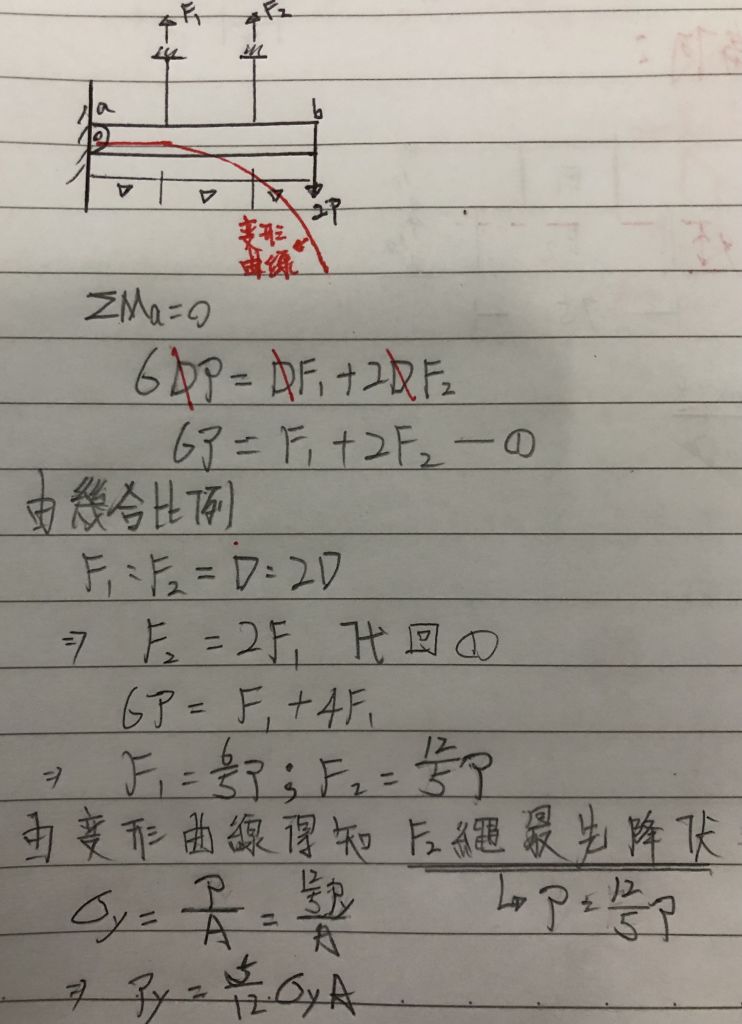 F₁ F₂
a b
D D D 2P
变形
曲線
ΣMa=0
6DP = DF₁ + 2DF₂
6P = F₁ + 2F₂ — ①
由幾合比例
F₁ : F₂ = D : 2D
⇒ F₂ = 2F₁ 代回①
6P = F₁ + 4F₁
⇒ F₁ = 6/5 P ; F₂ = 12/5 P
由变形曲線得知 F₂繩最先降伏
σy = P/A = (12/5 Py)/A ↳ P = 12/5 P
⇒ Py = 5/12 σyA